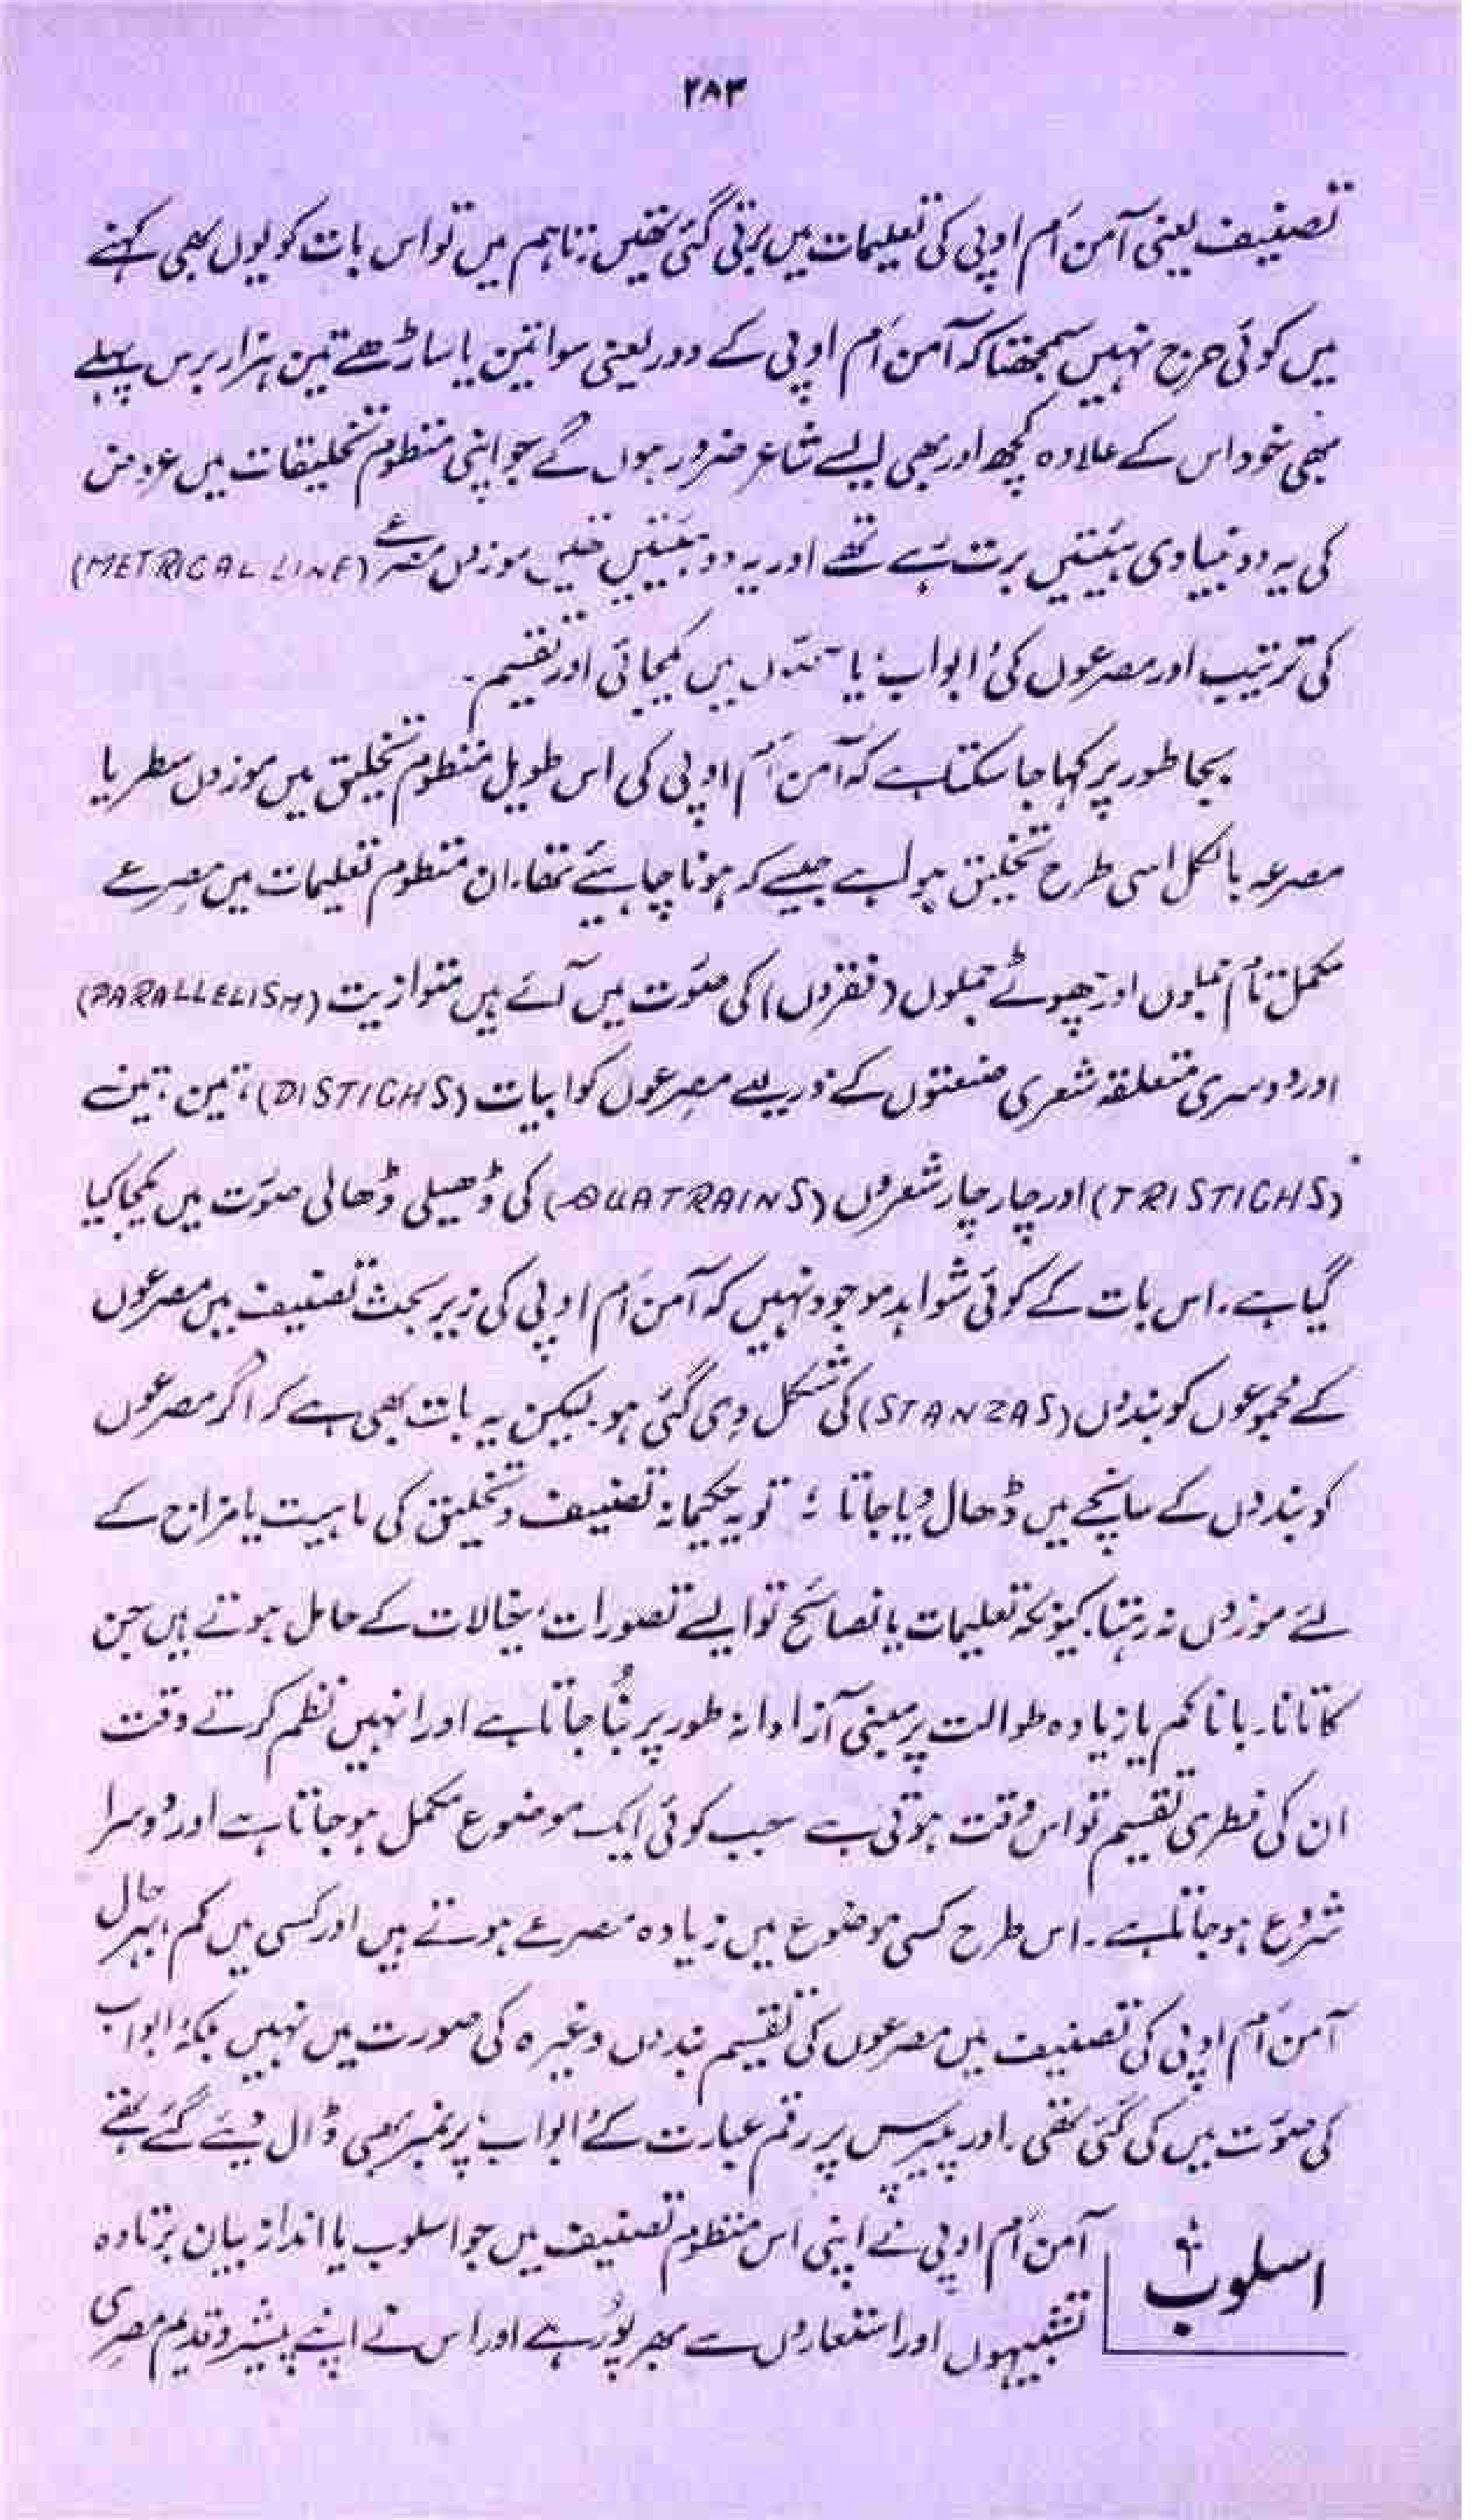 ۲۸۳
تصنیف یعنی آمن اَم اوپی کی تعلیمات میں برتی گئی تھیں، تاہم میں تو اس بات کو یوں بھی کہنے
میں کوئی حرج نہیں سمجھتا کہ آمن اَم اوپی کے دور یعنی سوا تین یا ساڑھے تین ہزار برس پہلے
بھی خود اس کے علاوہ کچھ اور بھی ایسے شاعر ضرور ہوں گے جو اپنی منظوم تخلیقات میں عروض
کی یہ دو بنیادی ہئیتیں برت رہے تھے اور یہ دو ہئیتیں تھیں موزوں مصرعے (METRICAL LINE)
کی ترتیب اور مصرعوں کی 'ابواب' یا حصّوں میں یکجائی اور تقسیم۔
بجا طور پر کہا جا سکتا ہے کہ آمن اَم اوپی کی اس طویل منظوم تخلیق میں موزوں سطر یا
مصرعہ بالکل اسی طرح تخلیق ہوا ہے جیسے کہ ہونا چاہیئے تھا۔ ان منظوم تعلیمات میں مصرعے
مکمل تام جملوں اور چھوٹے جملوں (فقروں) کی صورت میں آئے ہیں متوازیت (PARALLELISH)
اور دوسری متعلقہ شعری صنعتوں کے ذریعے مصرعوں کو ابیات (DISTICHS)، تین، تین
(TRISTICHS) اور چار چار شعروں (QUATRAINS) کی ڈھیلی ڈھالی صورت میں یکجا کیا
گیا ہے۔ اس بات کے کوئی شواہد موجود نہیں کہ آمن اَم اوپی کی زیر بحث تصنیف میں مصرعوں
کے مجموعوں کو بندوں (STANZAS) کی شکل دی گئی ہو۔ لیکن یہ بات بھی ہے کہ اگر مصرعوں
کو بندوں کے سانچے میں ڈھال دیا جاتا ؛ تو یہ حکیمانہ تصنیف و تخلیق کی ماہیت یا مزاج کے
لئے موزوں نہ رہتا۔ کیونکہ تعلیمات یا نصائح تو ایسے تصورات، خیالات کے حامل ہوتے ہیں جن
کا تانا۔ بانا کم یا زیادہ طوالت پر مبنی آزادانہ طور پر بُنا جاتا ہے اور انہیں نظم کرتے وقت
ان کی فطری تقسیم تو اس وقت ہوتی ہے جب کوئی ایک موضوع مکمل ہو جاتا ہے اور دوسرا
شروع ہو جاتا ہے۔ اس طرح کسی موضوع میں زیادہ مصرعے ہوتے ہیں اور کسی میں کم، بہر حال
آمن اَم اوپی کی تصنیف میں مصرعوں کی تقسیم بندوں وغیرہ کی صورت میں نہیں بلکہ 'ابواب'
کی صورت میں کی گئی تھی۔ اور پیپرس پر رقم عبارت کے 'ابواب' پر نمبر بھی ڈال دیئے گئے تھے
اسلوب
آمن اَم اوپی نے اپنی اس منظوم تصنیف میں جو اسلوب یا انداز بیان برتا وہ
تشبیہوں اور استعاروں سے بھر پور ہے اور اس نے اپنے پیشرو قدیم مصری